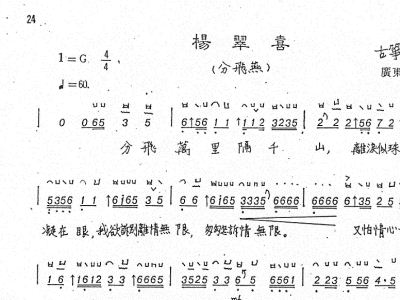 24
楊翠喜
(分飛燕)
古箏
廣東
1=G 4/4
♩=60.
0 0 65 3 5 | 6 1 56 1 1 1 1 1 2 3235 | 2 2 2 1 56 7 2
分飛萬里隔千山，離淚似珠
5356 1 1 | 6 1 65 3 5 | 6 6 6 1 65 3335 6666 | 6666 6 1 35 2 5
凝在眼，我欲訴別離情無限，匆匆怎訴情無限。又怕情心
1 6 1612 3 3 6665 | 3525 3 3 6 5 6561 | 2 23 5 56 4 5
mf